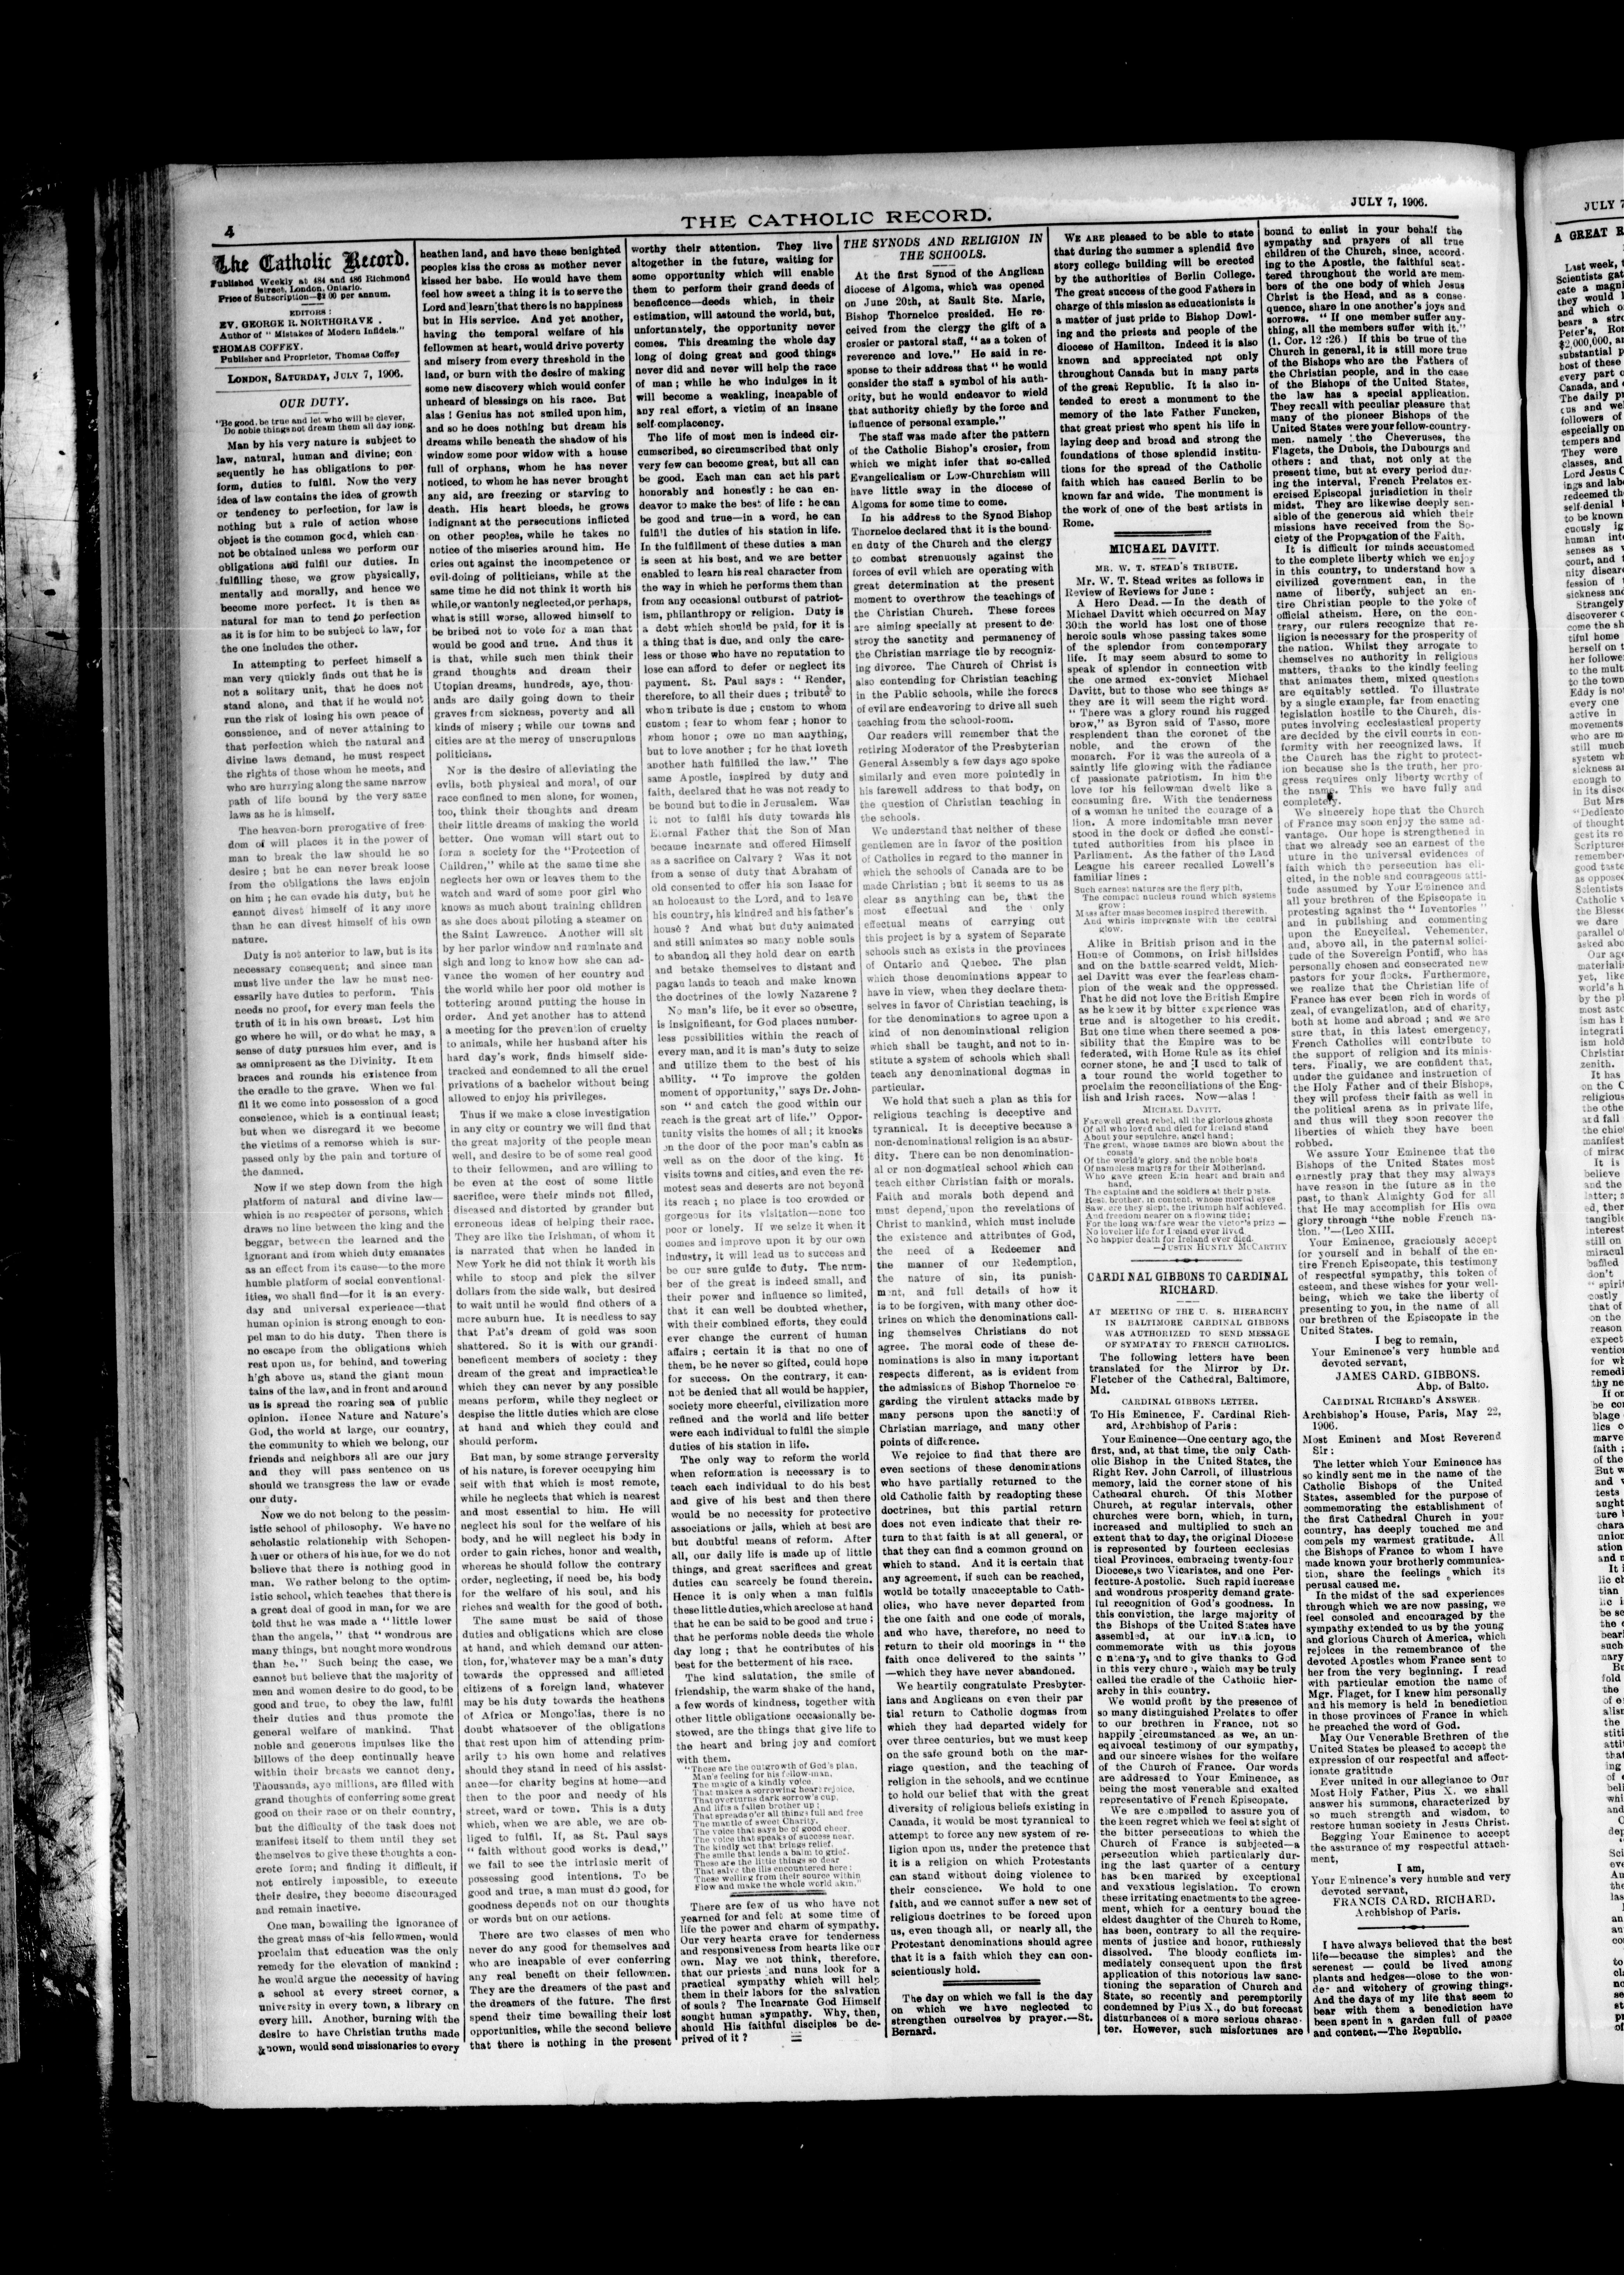 4
THE CATHOLIC RECORD.
JULY 7, 1906.
The Catholic Record.
Published Weekly at 484 and 486 Richmond
street, London, Ontario.
Price of Subscription—$2 00 per annum.
EDITORS:
EV. GEORGE R. NORTHGRAVE .
Author of "Mistakes of Modern Infidels."
THOMAS COFFEY.
Publisher and Proprietor, Thomas Coffey
LONDON, SATURDAY, JULY 7, 1906.
OUR DUTY.
"Be good, be true and let who will be clever,
Do noble things not dream them all day long.
Man by his very nature is subject to
law, natural, human and divine; con
sequently he has obligations to per-
form, duties to fulfil. Now the very
idea of law contains the idea of growth
or tendency to perfection, for law is
nothing but a rule of action whose
object is the common good, which can-
not be obtained unless we perform our
obligations and fulfil our duties. In
fulfilling these, we grow physically,
mentally and morally, and hence we
become more perfect. It is then as
natural for man to tend to perfection
as it is for him to be subject to law, for
the one includes the other.
In attempting to perfect himself a
man very quickly finds out that he is
not a solitary unit, that he does not
stand alone, and that if he would not
run the risk of losing his own peace of
conscience, and of never attaining to
that perfection which the natural and
divine laws demand, he must respect
the rights of those whom he meets, and
who are hurrying along the same narrow
path of life bound by the very same
laws as he is himself.
The heaven-born prerogative of free
dom of will places it in the power of
man to break the law should he so
desire ; but he can never break loose
from the obligations the laws enjoin
on him ; he can evade his duty, but he
cannot divest himself of it any more
than he can divest himself of his own
nature.
Duty is not anterior to law, but is its
necessary consequent; and since man
must live under the law he must nec-
essarily have duties to perform. This
needs no proof, for every man feels the
truth of it in his own breast. Let him
go where he will, or do what he may, a
sense of duty pursues him ever, and is
as omnipresent as the Divinity. It em
braces and rounds his existence from
the cradle to the grave. When we ful
fil it we come into possession of a good
conscience, which is a continual feast;
but when we disregard it we become
the victims of a remorse which is sur-
passed only by the pain and torture of
the damned.
Now if we step down from the high
platform of natural and divine law—
which is no respecter of persons, which
draws no line between the king and the
beggar, between the learned and the
ignorant and from which duty emanates
as an effect from its cause—to the more
humble platform of social conventional-
ities, we shall find—for it is an every-
day and universal experience—that
human opinion is strong enough to com-
pel man to do his duty. Then there is
no escape from the obligations which
rest upon us, for behind, and towering
high above us, stand the giant moun
tains of the law, and in front and around
us is spread the roaring sea of public
opinion. Hence Nature and Nature's
God, the world at large, our country,
the community to which we belong, our
friends and neighbors all are our jury
and they will pass sentence on us
should we transgress the law or evade
our duty.
Now we do not belong to the pessim-
istic school of philosophy. We have no
scholastic relationship with Schopen-
hauer or others of his hue, for we do not
believe that there is nothing good in
man. We rather belong to the optim-
istic school, which teaches that there is
a great deal of good in man, for we are
told that he was made a "little lower
than the angels," that "wondrous are
many things, but nought more wondrous
than he." Such being the case, we
cannot but believe that the majority of
men and women desire to do good, to be
good and true, to obey the law, fulfil
their duties and thus promote the
general welfare of mankind. That
noble and generous impulses like the
billows of the deep continually heave
within their breasts we cannot deny.
Thousands, aye millions, are filled with
grand thoughts of conferring some great
good on their race or on their country,
but the difficulty of the task does not
manifest itself to them until they set
themselves to give these thoughts a con-
crete form; and finding it difficult, if
not entirely impossible, to execute
their desire, they become discouraged
and remain inactive.
One man, bewailing the ignorance of
the great mass of his fellowmen, would
proclaim that education was the only
remedy for the elevation of mankind :
he would argue the necessity of having
a school at every street corner, a
university in every town, a library on
every hill. Another, burning with the
desire to have Christian truths made
known, would send missionaries to every
heathen land, and have these benighted
peoples kiss the cross as mother never
kissed her babe. He would have them
feel how sweet a thing it is to serve the
Lord and learn that there is no happiness
but in His service. And yet another,
having the temporal welfare of his
fellowmen at heart, would drive poverty
and misery from every threshold in the
land, or burn with the desire of making
some new discovery which would confer
unheard of blessings on his race. But
alas ! Genius has not smiled upon him,
and so he does nothing but dream his
dreams while beneath the shadow of his
window some poor widow with a house
full of orphans, whom he has never
noticed, to whom he has never brought
any aid, are freezing or starving to
death. His heart bleeds, he grows
indignant at the persecutions inflicted
on other peoples, while he takes no
notice of the miseries around him. He
cries out against the incompetence or
evil-doing of politicians, while at the
same time he did not think it worth his
while, or wantonly neglected, or perhaps,
what is still worse, allowed himself to
be bribed not to vote for a man that
would be good and true. And thus it
is that, while such men think their
grand thoughts and dream their
Utopian dreams, hundreds, aye, thou-
ands are daily going down to their
graves from sickness, poverty and all
kinds of misery ; while our towns and
cities are at the mercy of unscrupulous
politicians.
Nor is the desire of alleviating the
evils, both physical and moral, of our
race confined to men alone, for women,
too, think their thoughts and dream
their little dreams of making the world
better. One woman will start out to
form a society for the "Protection of
Children," while at the same time she
neglects her own or leaves them to the
watch and ward of some poor girl who
knows as much about training children
as she does about piloting a steamer on
the Saint Lawrence. Another will sit
by her parlor window and ruminate and
sigh and long to know how she can ad-
vance the women of her country and
the world while her poor old mother is
tottering around putting the house in
order. And yet another has to attend
a meeting for the prevention of cruelty
to animals, while her husband after his
hard day's work, finds himself side-
tracked and condemned to all the cruel
privations of a bachelor without being
allowed to enjoy his privileges.
Thus if we make a close investigation
in any city or country we will find that
the great majority of the people mean
well, and desire to be of some real good
to their fellowmen, and are willing to
be even at the cost of some little
sacrifice, were their minds not filled,
diseased and distorted by grander but
erroneous ideas of helping their race.
They are like the Irishman, of whom it
is narrated that when he landed in
New York he did not think it worth his
while to stoop and pick the silver
dollars from the side walk, but desired
to wait until he would find others of a
more auburn hue. It is needless to say
that Pat's dream of gold was soon
shattered. So it is with our grandi-
beneficent members of society : they
dream of the great and impracticable
which they can never by any possible
means perform, while they neglect or
despise the little duties which are close
at hand and which they could and
should perform.
But man, by some strange perversity
of his nature, is forever occupying him
self with that which is most remote,
while he neglects that which is nearest
and most essential to him. He will
neglect his soul for the welfare of his
body, and he will neglect his body in
order to gain riches, honor and wealth,
whereas he should follow the contrary
order, neglecting, if need be, his body
for the welfare of his soul, and his
riches and wealth for the good of both.
The same must be said of those
duties and obligations which are close
at hand, and which demand our atten-
tion, for, whatever may be a man's duty
towards the oppressed and afflicted
citizens of a foreign land, whatever
may be his duty towards the heathens
of Africa or Mongolias, there is no
doubt whatsoever of the obligations
that rest upon him of attending prim-
arily to his own home and relatives
should they stand in need of his assist-
ance—for charity begins at home—and
then to the poor and needy of his
street, ward or town. This is a duty
which, when we are able, we are ob-
liged to fulfil. If, as St. Paul says
"faith without good works is dead,"
we fail to see the intrinsic merit of
possessing good intentions. To be
good and true, a man must do good, for
goodness depends not on our thoughts
or words but on our actions.
There are two classes of men who
never do any good for themselves and
who are incapable of ever conferring
any real benefit on their fellowmen.
They are the dreamers of the past and
the dreamers of the future. The first
spend their time bewailing their lost
opportunities, while the second believe
that there is nothing in the present
worthy their attention. They live
altogether in the future, waiting for
some opportunity which will enable
them to perform their grand deeds of
beneficence—deeds which, in their
estimation, will astound the world, but,
unfortunately, the opportunity never
comes. This dreaming the whole day
long of doing great and good things
never did and never will help the race
of man ; while he who indulges in it
will become a weakling, incapable of
any real effort, a victim of an insane
self-complacency.
The life of most men is indeed cir-
cumscribed, so circumscribed that only
very few can become great, but all can
be good. Each man can act his part
honorably and honestly : he can en-
deavor to make the best of life : he can
be good and true—in a word, he can
fulfil the duties of his station in life.
In the fulfillment of these duties a man
is seen at his best, and we are better
enabled to learn his real character from
the way in which he performs them than
from any occasional outburst of patriot-
ism, philanthropy or religion. Duty is
a debt which should be paid, for it is
a thing that is due, and only the care-
less or those who have no reputation to
lose can afford to defer or neglect its
payment. St. Paul says : "Render,
therefore, to all their dues ; tribute to
whom tribute is due ; custom to whom
custom ; fear to whom fear ; honor to
whom honor ; owe no man anything,
but to love another ; for he that loveth
another hath fulfilled the law." The
same Apostle, inspired by duty and
faith, declared that he was not ready to
be bound but to die in Jerusalem. Was
it not to fulfil his duty towards his
Eternal Father that the Son of Man
became incarnate and offered Himself
as a sacrifice on Calvary ? Was it not
from a sense of duty that Abraham of
old consented to offer his son Isaac for
an holocaust to the Lord, and to leave
his country, his kindred and his father's
house ? And what but duty animated
and still animates so many noble souls
to abandon all they hold dear on earth
and betake themselves to distant and
pagan lands to teach and make known
the doctrines of the lowly Nazarene ?
No man's life, be it ever so obscure,
is insignificant, for God places number-
less possibilities within the reach of
every man, and it is man's duty to seize
and utilize them to the best of his
ability. "To improve the golden
moment of opportunity," says Dr. John-
son "and catch the good within our
reach is the great art of life." Oppor-
tunity visits the homes of all ; it knocks
on the door of the poor man's cabin as
well as on the door of the king. It
visits towns and cities, and even the re-
motest seas and deserts are not beyond
its reach ; no place is too crowded or
gorgeous for its visitation—none too
poor or lonely. If we seize it when it
comes and improve upon it by our own
industry, it will lead us to success and
be our sure guide to duty. The num-
ber of the great is indeed small, and
their power and influence so limited,
that it can well be doubted whether,
with their combined efforts, they could
ever change the current of human
affairs ; certain it is that no one of
them, be he never so gifted, could hope
for success. On the contrary, it can-
not be denied that all would be happier,
society more cheerful, civilization more
refined and the world and life better
were each individual to fulfil the simple
duties of his station in life.
The only way to reform the world
when reformation is necessary is to
teach each individual to do his best
and give of his best and then there
would be no necessity for protective
associations or jails, which at best are
but doubtful means of reform. After
all, our daily life is made up of little
things, and great sacrifices and great
duties can scarcely be found therein.
Hence it is only when a man fulfils
these little duties, which are close at hand
that he can be said to be good and true ;
that he performs noble deeds the whole
day long ; that he contributes of his
best for the betterment of his race.
The kind salutation, the smile of
friendship, the warm shake of the hand,
a few words of kindness, together with
other little obligations occasionally be-
stowed, are the things that give life to
the heart and bring joy and comfort
with them.
"These are the outgrowth of God's plan,
Man's feeling for his fellow-man,
The magic of a kindly voice,
That makes a sorrowing heart rejoice,
That overturns dark sorrow's cup,
And lifts a fallen brother up ;
That spreads o'er all things full and free
The mantle of sweet Charity.
The voice that says be of good cheer,
The voice that speaks of success near.
The kindly act that brings relief,
The smile that lends a balm to grief.
These are the little things so dear
That salve the ills encountered here ;
These welling from their source within
Flow and make the whole world akin."
There are few of us who have not
yearned for and felt at some time of
life the power and charm of sympathy.
Our very hearts crave for tenderness
and responsiveness from hearts like our
own. May we not think, therefore,
that our priests and nuns look for a
practical sympathy which will help
them in their labors for the salvation
of souls ? The Incarnate God Himself
sought human sympathy. Why, then,
should His faithful disciples be de-
prived of it ?
THE SYNODS AND RELIGION IN
THE SCHOOLS.
At the first Synod of the Anglican
diocese of Algoma, which was opened
on June 20th, at Sault Ste. Marie,
Bishop Thorneloe presided. He re-
ceived from the clergy the gift of a
crosier or pastoral staff, "as a token of
reverence and love." He said in re-
sponse to their address that "he would
consider the staff a symbol of his auth-
ority, but he would endeavor to wield
that authority chiefly by the force and
influence of personal example."
The staff was made after the pattern
of the Catholic Bishop's crosier, from
which we might infer that so-called
Evangelicalism or Low-Churchism will
have little sway in the diocese of
Algoma for some time to come.
In his address to the Synod Bishop
Thorneloe declared that it is the bound-
en duty of the Church and the clergy
to combat strenuously against the
forces of evil which are operating with
great determination at the present
moment to overthrow the teachings of
the Christian Church. These forces
are aiming specially at present to de-
stroy the sanctity and permanency of
the Christian marriage tie by recogniz-
ing divorce. The Church of Christ is
also contending for Christian teaching
in the Public schools, while the forces
of evil are endeavoring to drive all such
teaching from the school-room.
Our readers will remember that the
retiring Moderator of the Presbyterian
General Assembly a few days ago spoke
similarly and even more pointedly in
his farewell address to that body, on
the question of Christian teaching in
the schools.
We understand that neither of these
gentlemen are in favor of the position
of Catholics in regard to the manner in
which the schools of Canada are to be
made Christian ; but it seems to us as
clear as anything can be, that the
most effectual and the only
effectual means of carrying out
this project is by a system of Separate
schools such as exists in the provinces
of Ontario and Quebec. The plan
which those denominations appear to
have in view, when they declare them-
selves in favor of Christian teaching, is
for the denominations to agree upon a
kind of non denominational religion
which shall be taught, and not to in-
stitute a system of schools which shall
teach any denominational dogmas in
particular.
We hold that such a plan as this for
religious teaching is deceptive and
tyrannical. It is deceptive because a
non-denominational religion is an absur-
dity. There can be non denomination-
al or non-dogmatical school which can
teach either Christian faith or morals.
Faith and morals both depend and
must depend, upon the revelations of
Christ to mankind, which must include
the existence and attributes of God,
the need of a Redeemer and
the manner of our Redemption,
the nature of sin, its punish-
ment, and full details of how it
is to be forgiven, with many other doc-
trines on which the denominations call-
ing themselves Christians do not
agree. The moral code of these de-
nominations is also in many important
respects different, as is evident from
the admissions of Bishop Thorneloe re
garding the virulent attacks made by
many persons upon the sanctity of
Christian marriage, and many other
points of difference.
We rejoice to find that there are
even sections of these denominations
who have partially returned to the
old Catholic faith by readopting these
doctrines, but this partial return
does not even indicate that their re-
turn to that faith is at all general, or
that they can find a common ground on
which to stand. And it is certain that
any agreement, if such can be reached,
would be totally unacceptable to Cath-
olics, who have never departed from
the one faith and one code of morals,
and who have, therefore, no need to
return to their old moorings in "the
faith once delivered to the saints"
—which they have never abandoned.
We heartily congratulate Presbyter-
ians and Anglicans on even their par
tial return to Catholic dogmas from
which they had departed widely for
over three centuries, but we must keep
on the safe ground both on the mar-
riage question, and the teaching of
religion in the schools, and we continue
to hold our belief that with the great
diversity of religious beliefs existing in
Canada, it would be most tyrannical to
attempt to force any new system of re-
ligion upon us, under the pretence that
it is a religion on which Protestants
can stand without doing violence to
their conscience. We hold to one
faith, and we cannot suffer a new set of
religious doctrines to be forced upon
us, even though all, or nearly all, the
Protestant denominations should agree
that it is a faith which they can con-
scientiously hold.
The day on which we fall is the day
on which we have neglected to
strengthen ourselves by prayer.—St.
Bernard.
WE ARE pleased to be able to state
that during the summer a splendid five
story college building will be erected
by the authorities of Berlin College.
The great success of the good Fathers in
charge of this mission as educationists is
a matter of just pride to Bishop Dowl-
ing and the priests and people of the
diocese of Hamilton. Indeed it is also
known and appreciated not only
throughout Canada but in many parts
of the great Republic. It is also in-
tended to erect a monument to the
memory of the late Father Funcken,
that great priest who spent his life in
laying deep and broad and strong the
foundations of those splendid institu-
tions for the spread of the Catholic
faith which has caused Berlin to be
known far and wide. The monument is
the work of one of the best artists in
Rome.
MICHAEL DAVITT.
MR. W. T. STEAD'S TRIBUTE.
Mr. W. T. Stead writes as follows in
Review of Reviews for June :
A Hero Dead.—In the death of
Michael Davitt which occurred on May
30th the world has lost one of those
heroic souls whose passing takes some
of the splendor from contemporary
life. It may seem absurd to some to
speak of splendor in connection with
the one armed ex-convict Michael
Davitt, but to those who see things as
they are it will seem the right word.
"There was a glory round his rugged
brow," as Byron said of Tasso, more
resplendent than the coronet of the
noble, and the crown of the
monarch. For it was the aureola of a
saintly life glowing with the radiance
of passionate patriotism. In him the
love for his fellowman dwelt like a
consuming fire. With the tenderness
of a woman he united the courage of a
lion. A more indomitable man never
stood in the dock or defied the consti-
tuted authorities from his place in
Parliament. As the father of the Land
League his career recalled Lowell's
familiar lines :
Such earnest natures are the fiery pith,
The compact nucleus round which systems
grow :
Mass after mass becomes inspired therewith,
And whirls impregnate with the central
glow.
Alike in British prison and in the
House of Commons, on Irish hillsides
and on the battle-scarred veldt, Mich-
ael Davitt was ever the fearless cham-
pion of the weak and the oppressed.
That he did not love the British Empire
as he knew it by bitter experience was
true and is altogether to his credit.
But one time when there seemed a pos-
sibility that the Empire was to be
federated, with Home Rule as its chief
corner stone, he and I used to talk of
a tour round the world together to
proclaim the reconciliations of the Eng-
lish and Irish races. Now—alas !
MICHAEL DAVITT.
Farewell great rebel, all the glorious ghosts
Of all who loved and died for Ireland stand
About your sepulchre, angel hand ;
The great, whose names are blown about the
coasts
Of the world's glory, and the noble hosts
Of nameless martyrs for their Motherland,
Who gave green Erin heart and brain and
hand,
The captains and the soldiers at their posts.
Rest, brother, in content, whose mortal eyes
Saw, ere they slept, the triumph half achieved,
And freedom nearer on a flowing tide ;
For the long warfare wear the victor's prize —
No lovelier life for Ireland ever lived
No happier death for Ireland ever died.
—JUSTIN HUNTLY MCCARTHY
CARDINAL GIBBONS TO CARDINAL
RICHARD.
AT MEETING OF THE U. S. HIERARCHY
IN BALTIMORE CARDINAL GIBBONS
WAS AUTHORIZED TO SEND MESSAGE
OF SYMPATHY TO FRENCH CATHOLICS.
The following letters have been
translated for the Mirror by Dr.
Fletcher of the Cathedral, Baltimore,
Md.
CARDINAL GIBBONS LETTER.
To His Eminence, F. Cardinal Rich-
ard, Archbishop of Paris :
Your Eminence—One century ago, the
first, and, at that time, the only Cath-
olic Bishop in the United States, the
Right Rev. John Carroll, of illustrious
memory, laid the corner stone of his
Cathedral church. Of this Mother
Church, at regular intervals, other
churches were born, which, in turn,
increased and multiplied to such an
extent that to day, the original Diocese
is represented by fourteen ecclesias
tical Provinces, embracing twenty-four
Dioceses, two Vicariates, and one Per-
fecture-Apostolic. Such rapid increase
and wondrous prosperity demand grate-
ful recognition of God's goodness. In
this conviction, the large majority of
the Bishops of the United States have
assembled, at our invitation, to
commemorate with us this joyous
centenary, and to give thanks to God
in this very church, which may be truly
called the cradle of the Catholic hier-
archy in this country.
We would profit by the presence of
so many distinguished Prelates to offer
to our brethren in France, not so
happily circumstanced as we, an un-
equivocal testimony of our sympathy,
and our sincere wishes for the welfare
of the Church of France. Our words
are addressed to Your Eminence, as
being the most venerable and exalted
representative of French Episcopate.
We are compelled to assure you of
the keen regret which we feel at sight of
the bitter persecutions to which the
Church of France is subjected—a
persecution which particularly dur-
ing the last quarter of a century
has been marked by exceptional
and vexatious legislation. To crown
these irritating enactments to the agree-
ment, which for a century bound the
eldest daughter of the Church to Rome,
has been, contrary to all the require-
ments of justice and honor, ruthlessly
dissolved. The bloody conflicts im-
mediately consequent upon the first
application of this notorious law sanc-
tioning the separation of Church and
State, so recently and peremptorily
condemned by Pius X., do but forecast
disturbances of a more serious charac-
ter. However, such misfortunes are
bound to enlist in your behalf the
sympathy and prayers of all true
children of the Church, since, accord-
ing to the Apostle, the faithful scat-
tered throughout the world are mem-
bers of the one body of which Jesus
Christ is the Head, and as a conse-
quence, share in one another's joys and
sorrows. "If one member suffer any-
thing, all the members suffer with it."
(1. Cor. 12 :26.) If this be true of the
Church in general, it is still more true
of the Bishops who are the Fathers of
the Christian people, and in the case
of the Bishops of the United States,
the law has a special application.
They recall with peculiar pleasure that
many of the pioneer Bishops of the
United States were your fellow-country-
men, namely : the Cheveruses, the
Flagets, the Dubois, the Dubourgs and
others : and that, not only at the
present time, but at every period dur-
ing the interval, French Prelates ex-
ercised Episcopal jurisdiction in their
midst. They are likewise deeply sen-
sible of the generous aid which their
missions have received from the So-
ciety of the Propagation of the Faith.
It is difficult for minds accustomed
to the complete liberty which we enjoy
in this country, to understand how a
civilized government can, in the
name of liberty, subject an en-
tire Christian people to the yoke of
official atheism. Here, on the con-
trary, our rulers recognize that re-
ligion is necessary for the prosperity of
the nation. Whilst they arrogate to
themselves no authority in religious
matters, thanks to the kindly feeling
that animates them, mixed questions
are equitably settled. To illustrate
by a single example, far from enacting
legislation hostile to the Church, dis-
putes involving ecclesiastical property
are decided by the civil courts in con-
formity with her recognized laws. If
the Church has the right to protect-
ion because she is the truth, her pro-
gress requires only liberty worthy of
the name. This we have fully and
completely.
We sincerely hope that the Church
of France may soon enjoy the same ad-
vantage. Our hope is strengthened in
that we already see an earnest of the
uture in the universal evidences of
faith which the persecution has eli-
cited, in the noble and courageous atti-
tude assumed by Your Eminence and
all your brethren of the Episcopate in
protesting against the "Inventories"
and in publishing and commenting
upon the Encyclical. Vehementer,
and, above all, in the paternal solici-
tude of the Sovereign Pontiff, who has
personally chosen and consecrated new
pastors for your flocks. Furthermore,
we realize that the Christian life of
France has ever been rich in words of
zeal, of evangelization, and of charity,
both at home and abroad ; and we are
sure that, in this latest emergency,
French Catholics will contribute to
the support of religion and its minis-
ters. Finally, we are confident that,
under the guidance and instruction of
the Holy Father and of their Bishops,
they will profess their faith as well in
the political arena as in private life,
and thus will you soon recover the
liberties of which they have been
robbed.
We assure Your Eminence that the
Bishops of the United States most
earnestly pray that they may always
have reason in the future as in the
past, to thank Almighty God for all
that He may accomplish for His own
glory through "the noble French na-
tion."—(Leo XIII.
Your Eminence, graciously accept
for yourself and in behalf of the en-
tire French Episcopate, this testimony
of respectful sympathy, this token of
esteem, and these wishes for your well-
being, which we take the liberty of
presenting to you, in the name of all
our brethren of the Episcopate in the
United States.
I beg to remain,
Your Eminence's very humble and
devoted servant,
JAMES CARD. GIBBONS.
Abp. of Balto.
CARDINAL RICHARD'S ANSWER.
Archbishop's House, Paris, May 22,
1906.
Most Eminent and Most Reverend
Sir :
The letter which Your Eminence has
so kindly sent me in the name of the
Catholic Bishops of the United
States, assembled for the purpose of
commemorating the establishment of
the first Cathedral Church in your
country, has deeply touched me and
compels my warmest gratitude. All
the Bishops of France to whom I have
made known your brotherly communica-
tion, share the feelings which its
perusal caused me.
In the midst of the sad experiences
through which we are now passing, we
feel consoled and encouraged by the
sympathy extended to us by the young
and glorious Church of America, which
rejoices in the remembrance of the
devoted Apostles whom France sent to
her from the very beginning. I read
with particular emotion the name of
Mgr. Flaget, for I knew him personally
and his memory is held in benediction
in those provinces of France in which
he preached the word of God.
May Our Venerable Brethren of the
United States be pleased to accept the
expression of our respectful and affect-
ionate gratitude
Ever united in our allegiance to Our
Most Holy Father, Pius X. we shall
answer his summons, characterized by
so much strength and wisdom, to
restore human society in Jesus Christ.
Begging Your Eminence to accept
the assurance of my respectful attach-
ment,
I am,
Your Eminence's very humble and very
devoted servant,
FRANCIS CARD. RICHARD.
Archbishop of Paris.
I have always believed that the best
life—because the simplest and the
serenest — could be lived among
plants and hedges—close to the won-
der and witchery of growing things.
And the days of my life that seem to
bear with them a benediction have
been spent in a garden full of peace
and content.—The Republic.
JULY 7
A GREAT R